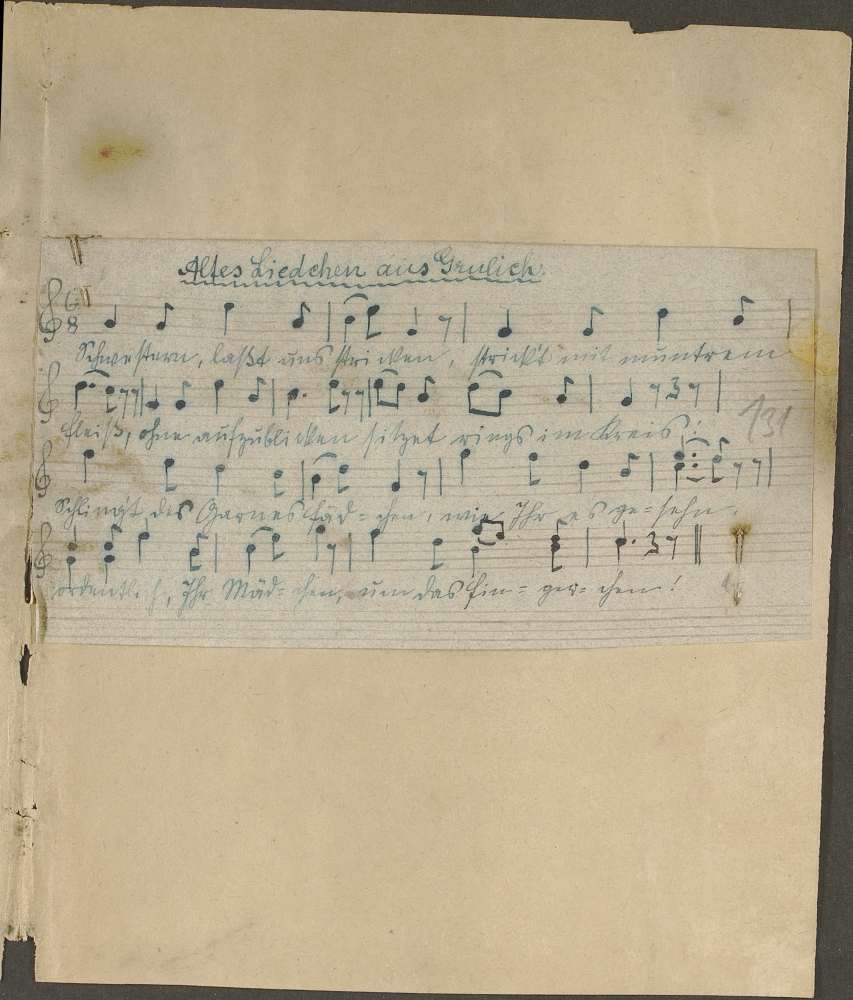 Altes Liedchen aus Grulich.
6
8
Schwestern, laßt uns stricken, strickt mit muntrem
Fleiß, ohne aufzublicken sitzet rings im Kreis!
131
Schlingt des Garnes Fäd-chen, wie Ihr es ge-sehn.
ordentlich, Ihr Mäd-chen, um das Fin-ger-chen!